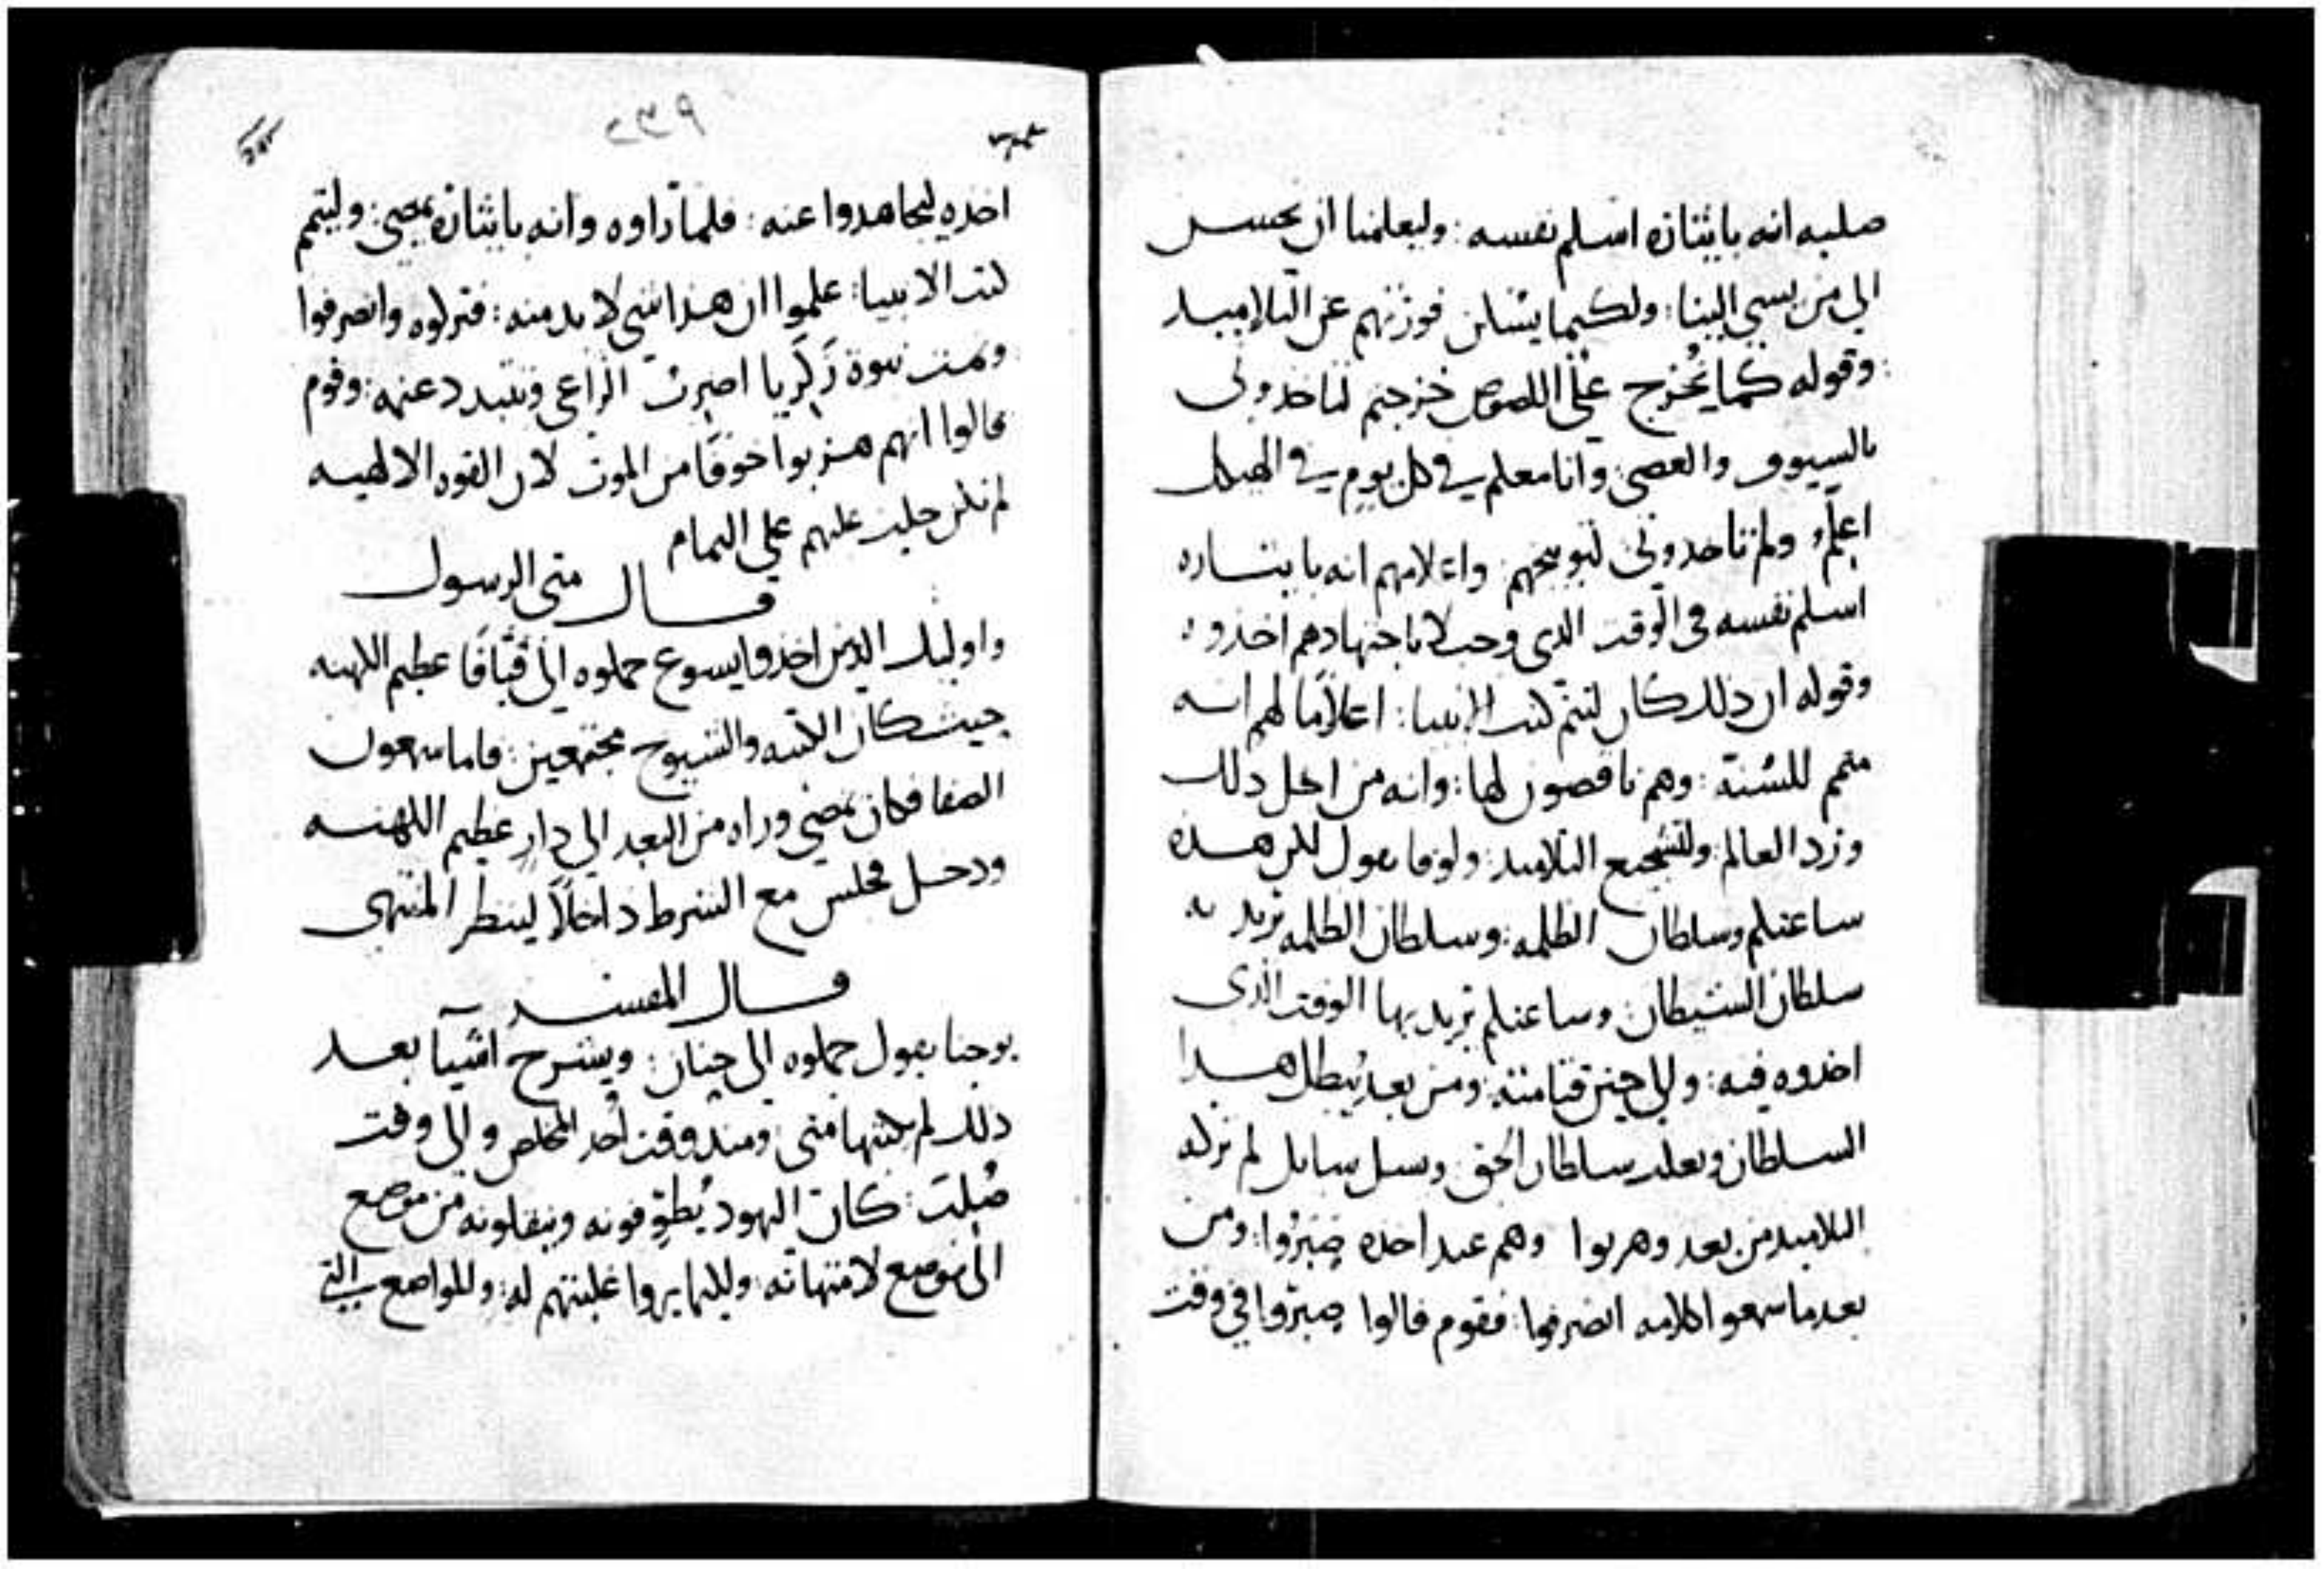 صلبه انه بايثاره اسلم نفسه : وليعلمنا ان نحسن
الي من يسي الينا : ولكيما يسكن فورتهم عن التلاميد
: وقوله كما يُخرج علي اللصوص خرجتم لتاخدوني
بالسيوف والعصي وانا معلم في كل يوم في الهيكل
اعلّم ولم تاخدوني لتوبيخهم واعلامهم انه بايثاره
اسلم نفسه في الوقت الدي وجب لا باجتهادهم اخذوه
وقوله ان ذلك كان لتتم كتب الانبيا : اعلامًا لهم انه
متمم للسنة : وهم ناقصون لها : وانه من اجل دلك
ورد العالم : ولتشجيع التلاميد : ولوقا يقول لكن هذه
ساعتكم وسلطان الظلمه : وسلطان الظلمه يريد به
سلطان الشيطان وساعتكم يريد بها الوقت الذي
اخدوه فيه : والي حين قيامته : ومن بعد يُبطل هدا
السلطان ويعلى سلطان الحق وسىل سايل لم تركه
التلاميد من بعد وهربوا وهم عند اخده صبرُوا : ومن
بعد ما سمعوا كلامه انصرفوا : فقوم قالوا صبرُوا في وقت
٢٣٩
اخده ليجاهدوا عنه : فلما راوه وانه بايثاره يمضي : وليتمم
كتب الانبيا : علموا ان هذا شي لا بد منه : فتركوه وانصرفوا
وتمت نبوة زَكَريا اضرب الراعي وتتبدد عنمه : وقوم
قالوا انهم هربوا خوفًا من الموت لان القوه الالهيه
لم تكن حلت عليهم علي التمام
قال متي الرسول
واوليك الذين اخذوا يسوع حملوه الي قيافا عظيم الكهنه
حيث كان الكتبه والشيوخ مجتمعين : فاما سمعون
الصفا فكان يمضي وراه من البعد الي دار عظيم الكهنه
ودخل فجلس مع الشرط داخلاً لينظر المنتهي
قال المفسر
يوحنا يقول حملوه الي حنان : ويشرح اشيآ بعد
ذلك لم يكتبها متي ومند وقت اخد المخلص والي وقت
صُلبَ : كان اليهود يُطوّفونه وينقلونه من موضع
الي موضع لامتهانه : وليكيما يروا غلبتهم له : وللواضع التي